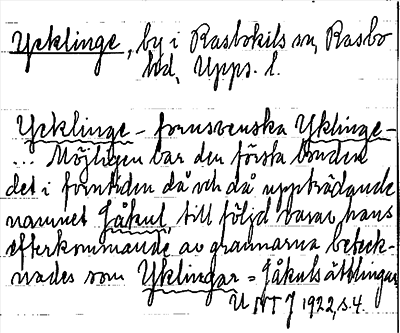 Ycklinge, by i Rasbokils sn, Rasbo
hd, Upps. l.
Ycklinge - fornsvenska Yklinge -
... Möjligen bar den första bonden
det i forntiden då och då uppträdande
namnet Jåkul, till följd varav hans
efterkommande av grannarna beteck-
nades som Yklingar = Jåkulsättlingar
U NT J 1922, s. 4.